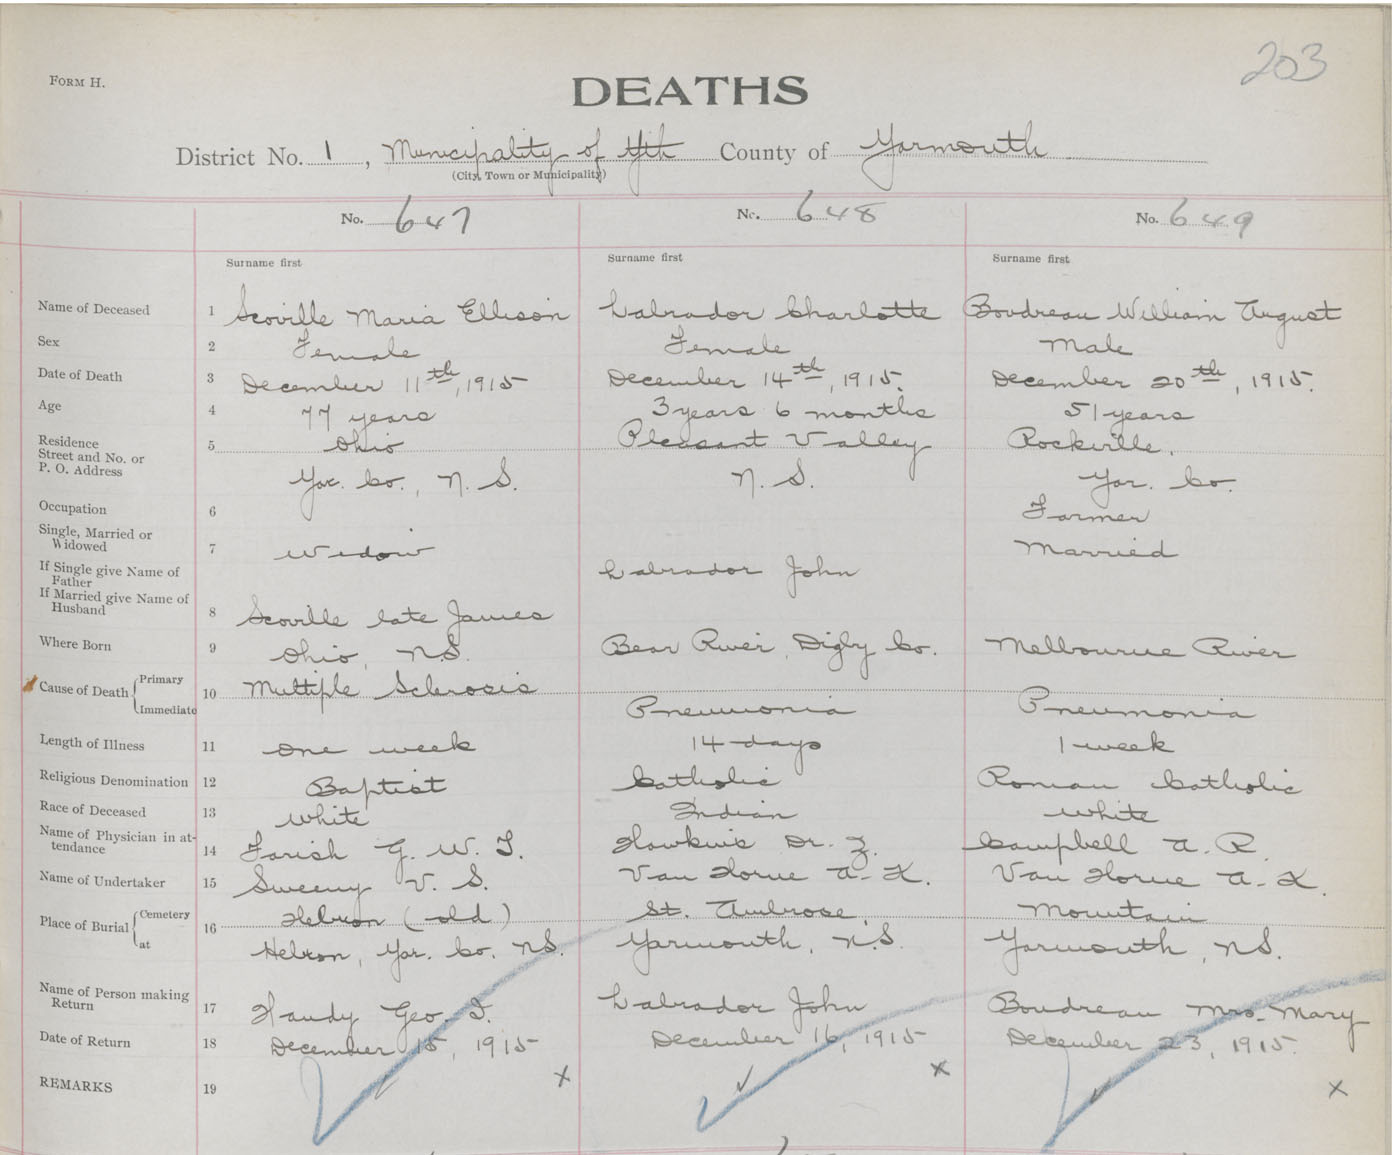 203
FORM H.
DEATHS
District No. 1, Municipality of Yth County of Yarmouth
(City, Town or Municipality)
No. 647 No. 648 No. 649
Surname first Surname first Surname first
Name of Deceased 1 Scoville Maria Ellison Labrador Charlotte Boudreau William August
Sex 2 Female Female Male
Date of Death 3 December 11th, 1915 December 14th, 1915. December 20th, 1915.
Age 4 77 years 3 years 6 months 51 years
Residence 5 Ohio Pleasant Valley Rockville.
Street and No. or
P. O. Address Yar. Co., N. S. N. S. Yar. Co.
Occupation 6 Farmer
Single, Married or
Widowed 7 Widow Married
If Single give Name of
Father Labrador John
If Married give Name of
Husband 8 Scoville late James
Where Born 9 Ohio, N.S. Bear River, Digby Co. Melbourne River
Cause of Death Primary 10 Multiple Sclerosis
Immediate Pneumonia Pneumonia
Length of Illness 11 one week 14 days 1 week
Religious Denomination 12 Baptist Catholic Roman Catholic
Race of Deceased 13 White Indian White
Name of Physician in at-
tendance 14 Farish G. W. T. Hawkins Dr. Z. Campbell A. R.
Name of Undertaker 15 Sweeny V. S. Van Horne A. K. Van Horne A. K.
Place of Burial Cemetery 16 Hebron (old) St. Ambrose, Mountain
at Hebron, Yar. Co. NS. Yarmouth, N.S. Yarmouth, N.S.
Name of Person making
Return 17 Handy Geo. I. Labrador John Boudreau Mrs. Mary
Date of Return 18 December 15, 1915 December 16, 1915 December 23, 1915.
REMARKS 19 x x x